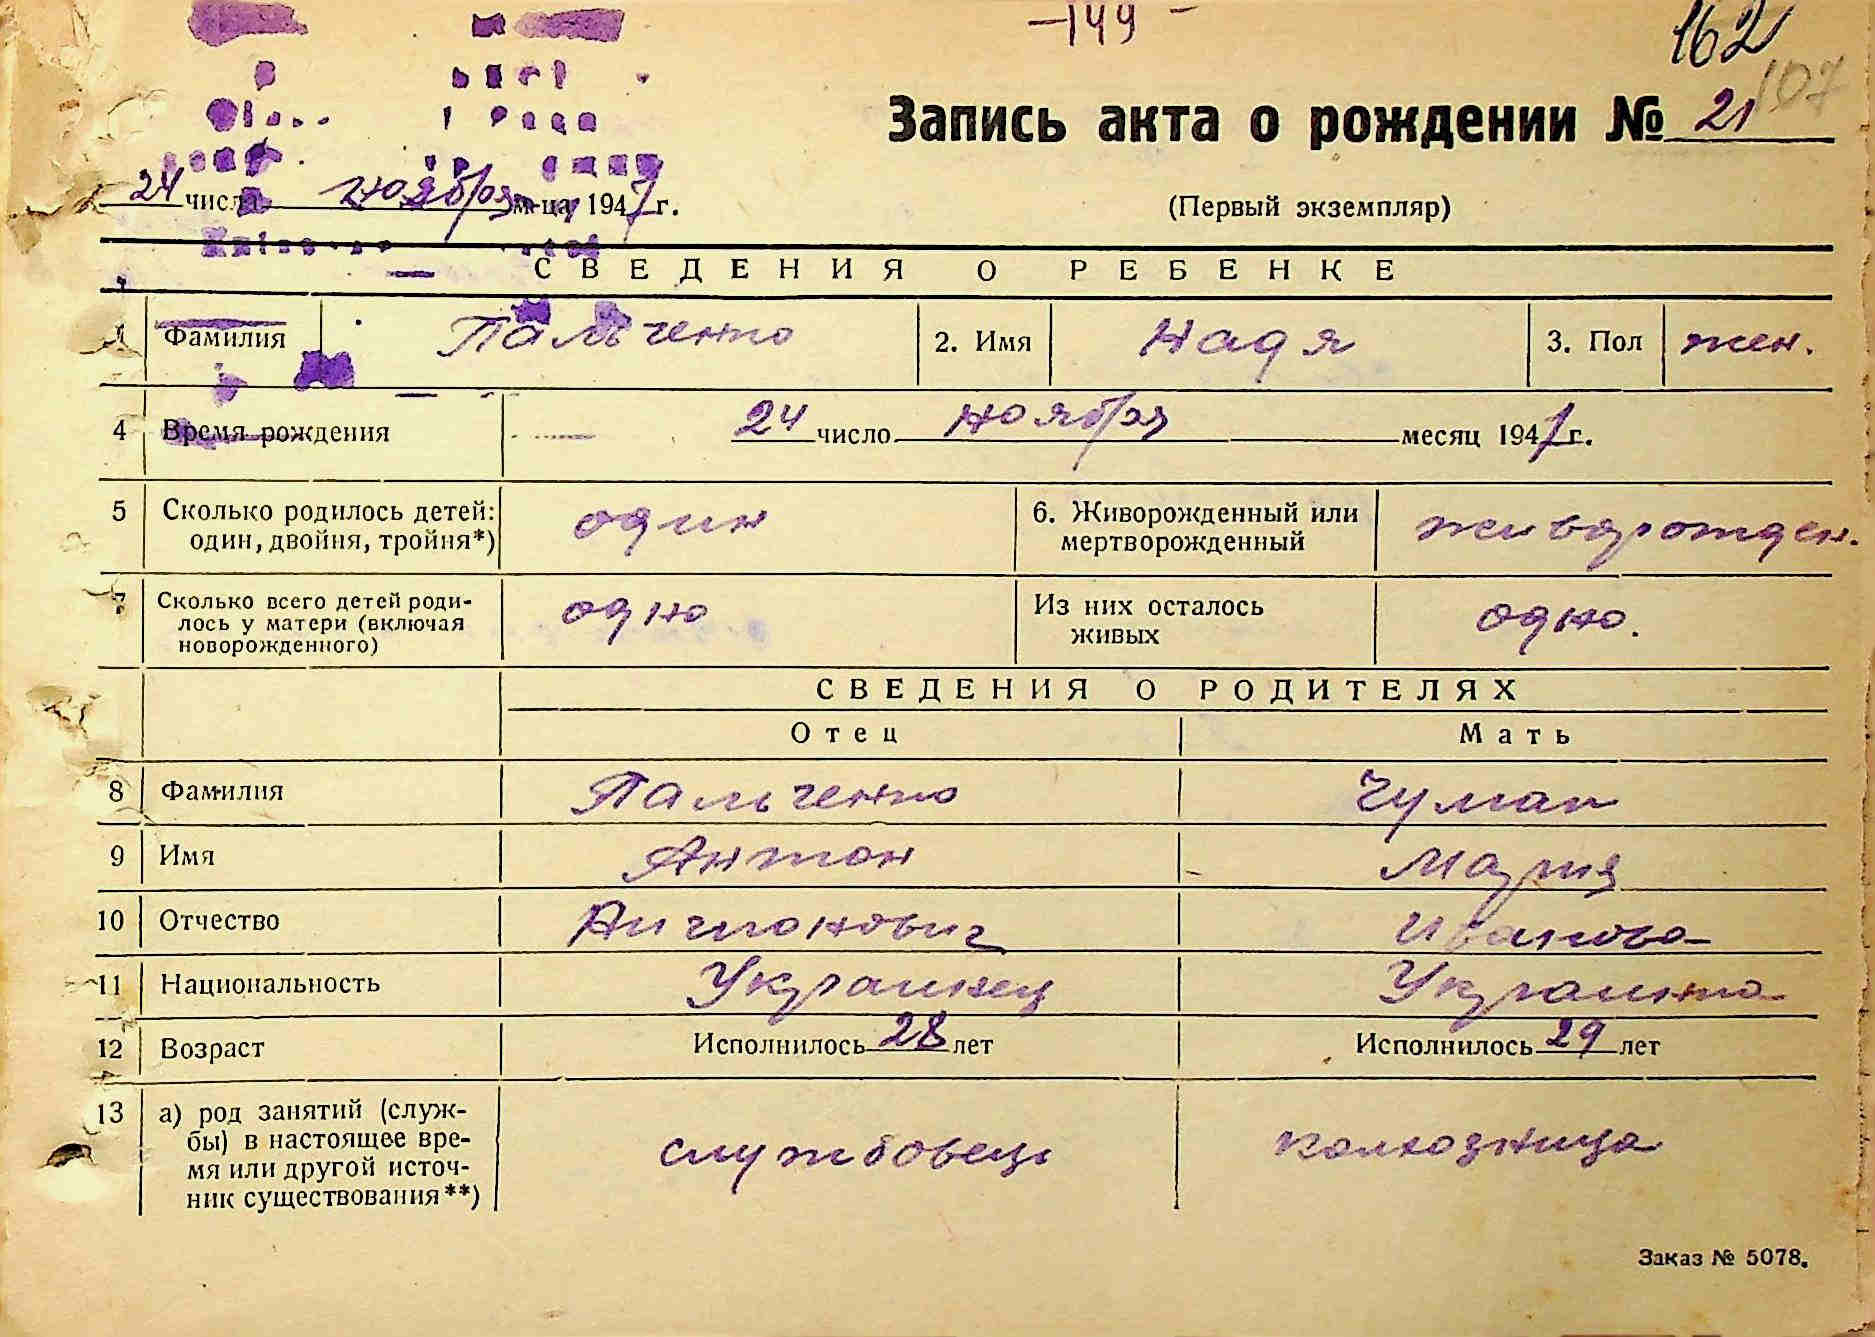 -144-
162
107
Запись акта о рождении № 21
24 числа ноября м-ца 1947 г.
(Первый экземпляр)
СВЕДЕНИЯ О РЕБЕНКЕ
1 Фамилия Пальченко 2. Имя Надя 3. Пол жен.
4 Время рождения 24 число ноября месяц 1947 г.
5 Сколько родилось детей: один, двойня, тройня*) один 6. Живорожденный или мертворожденный живорожден.
7 Сколько всего детей роди-
лось у матери (включая
новорожденного) одно Из них осталось
живых одно.
СВЕДЕНИЯ О РОДИТЕЛЯХ
Отец Мать
8 Фамилия Пальченко Чумак
9 Имя Антон Мария
10 Отчество Антонович Иванова
11 Национальность Украинец Украинка
12 Возраст Исполнилось 28 лет Исполнилось 29 лет
13 а) род занятий (служ-
бы) в настоящее вре-
мя или другой источ-
ник существования**) службовець колхозница
Заказ № 5078.